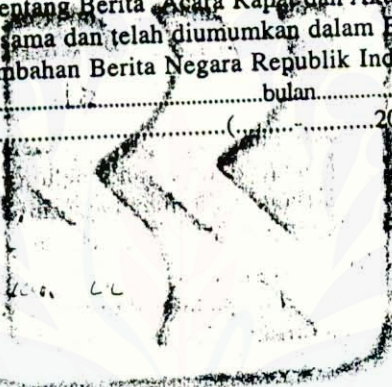 entang Berita Acara Rapat dan
sama dan telah diumumkan dalam
mbahan Berita Negara Republik Ind
bulan
(.......-.......20